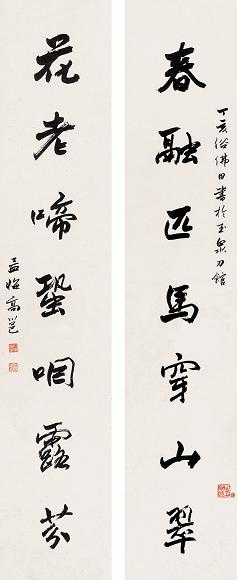 丁亥浴佛日書於玉泉刀館
春融匹馬穿山翠
花老啼蛩咽露芬
孟悔高邕